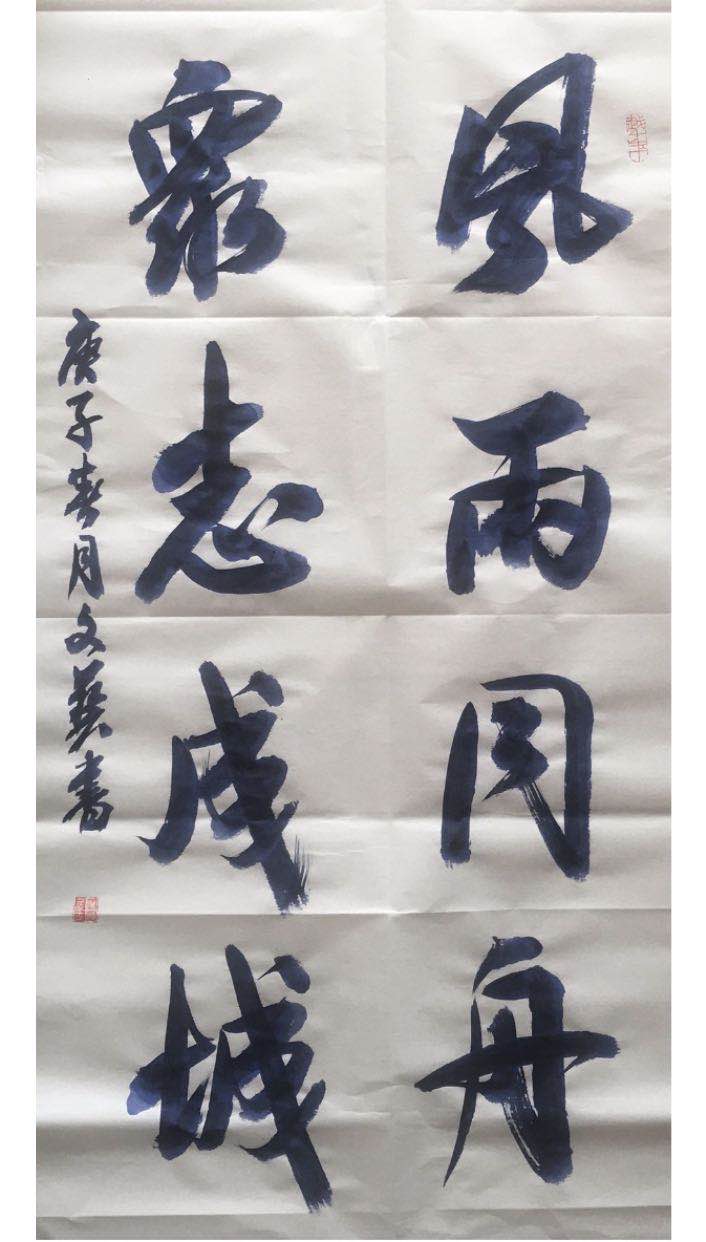 風雨同舟
眾志成城
庚子春月文藝書